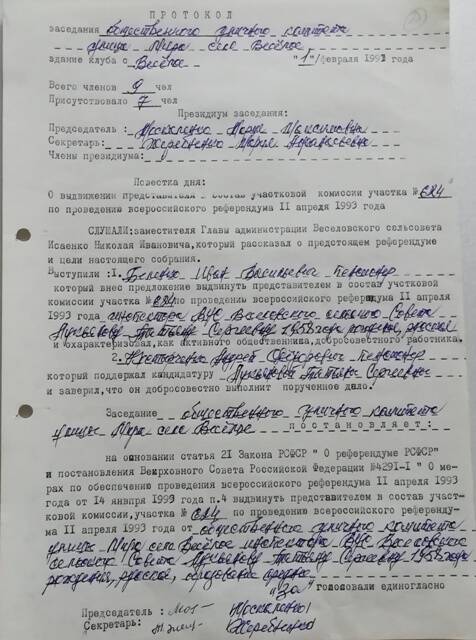 ПРОТОКОЛ
заседания общественного уличного комитета
улицы Мира села Весёлое,
здание клуба с Весёлое "1" февраля 1993 года
Всего членов 9 чел
Присутствовало 7 чел
Президиум заседания:
Председатель: Москаленко Моисеевна
Секретарь: Жеребненко Мария Афанасьевна
Члены президиума:
Повестка дня:
О выдвижении представителя в состав участковой комиссии участка № 624
по проведению всероссийского референдума 11 апреля 1993 года
СЛУШАЛИ: заместителя Главы администрации Веселовского сельсовета
Исаенко Николая Ивановича, который рассказал о предстоящем референдуме
и цели настоящего собрания.
Выступили :1. Иван Васильевич пенсионер
который внес предложение выдвинуть представителем в состав учстковой
комиссии участка № 624 по проведению всероссийского референдума 11 апреля
1993 года инспектора ВУС Веселовского сельского Совета
Лукьянову Татьяну Сергеевну 1958 года рождения, русская
и охарактеризовал, как активного общественника, добросовестного работника.
2. Андрей Фёдорович пенсионер
который поддержал кандидатуру Лукьяновой Татьяны Сергеевны
и заверил, что он добросовестно выполнит порученное дело.
Заседание общественного уличного комитета
улицы Мира села Весёлое постановляет:
на основании статьи 21 Закона РСФСР " О референдуме РСФСР"
и постановления Верховного Совета Российской Федерации №4291-I "О ме-
рах по обеспечению проведения всероссийского референдума 11 апреля 1993
года от 14 января 1993 года п.4 выдвинуть представителем в состав участ-
ковой комиссии, участка № 624 по проведению всероссийского референду-
ма 11 апреля 1993 года от общественного уличного комитета
улицы Мира села Весёлое инспектора ВУС Веселовского
сельского Совета Лукьянову Татьяну Сергеевну 1958 года
рождения, русской, образование среднее
"За" голосовали единогласно
Председатель: Москаленко
Секретарь: Жеребненко